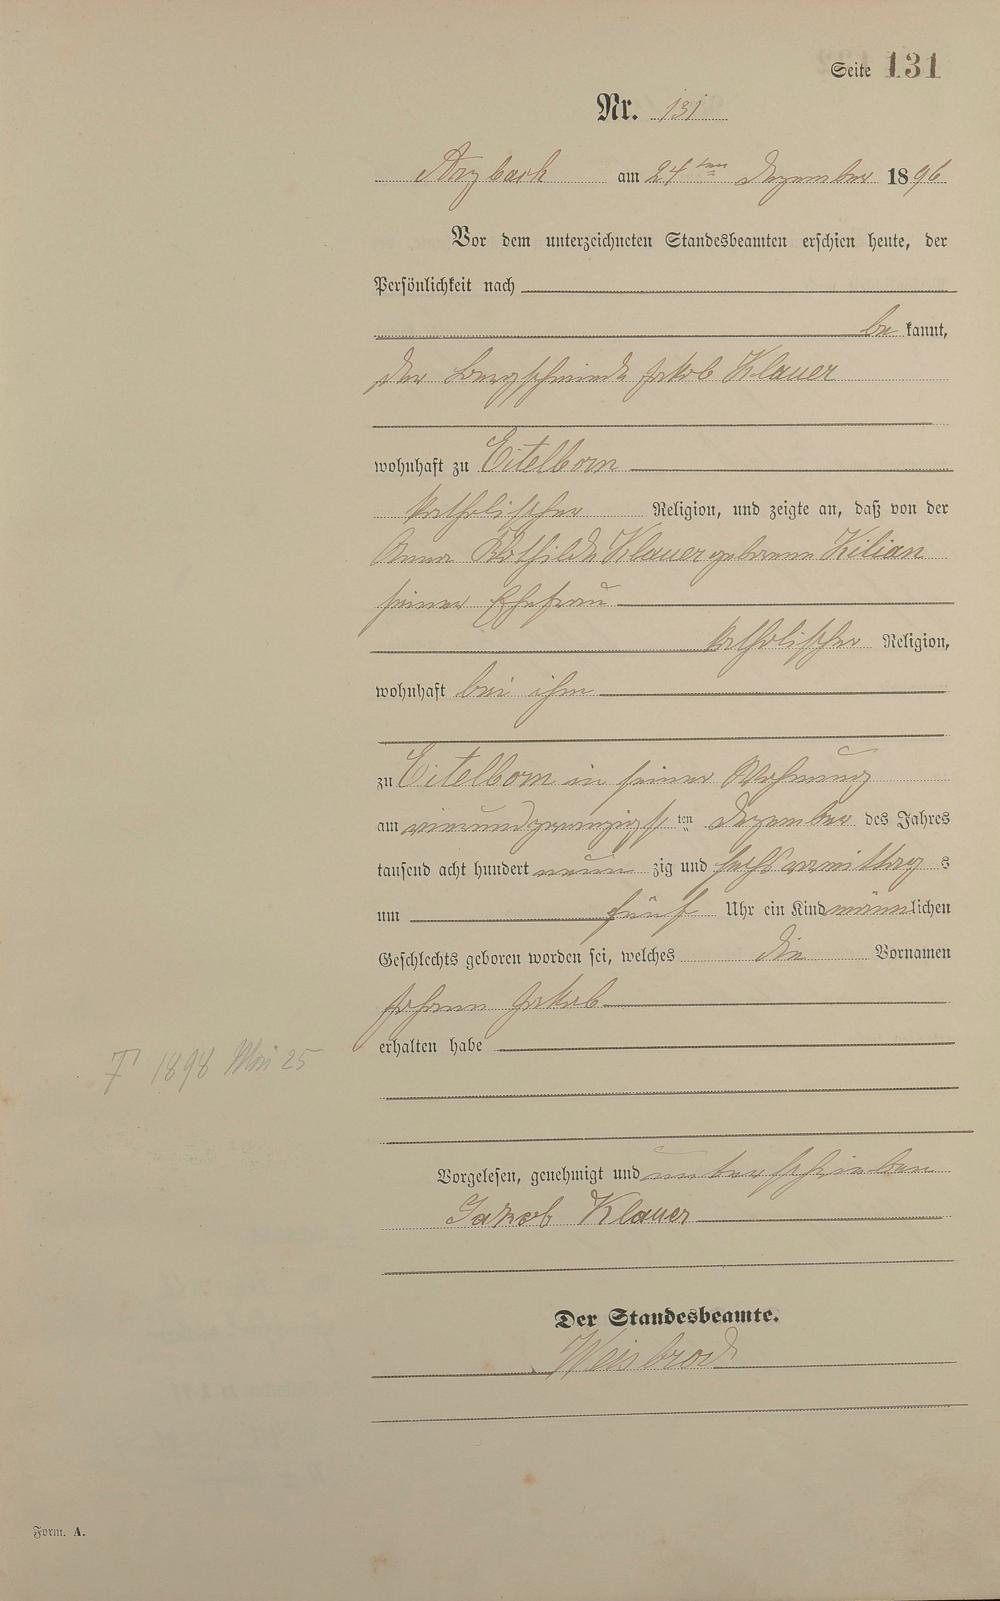 Seite 131
Nr. 131
Arzbach am 24ten Dezember 1896
Vor dem unterzeichneten Standesbeamten erschien heute, der
Persönlichkeit nach
bekannt,
der Bergschmiede Jakob Klauer
wohnhaft zu Eitelborn
katholischer Religion, und zeigte an, daß von der
Anna Klothilde Klauer geborene Kilian
seiner Ehefrau
katholischer Religion,
wohnhaft bei ihm
zu Eitelborn in seiner Wohnung
am vierundzwanzigsten Dezember des Jahres
tausend acht hundert neunzig und sechs vormittags
um fünf Uhr ein Kind männlichen
Geschlechts geboren worden sei, welches die Vornamen
Johann Jakob
erhalten habe
† 1898 Mai 25
Vorgelesen, genehmigt und unterschrieben
Jakob Klauer
Der Standesbeamte.
Weisbrod
Form. A.